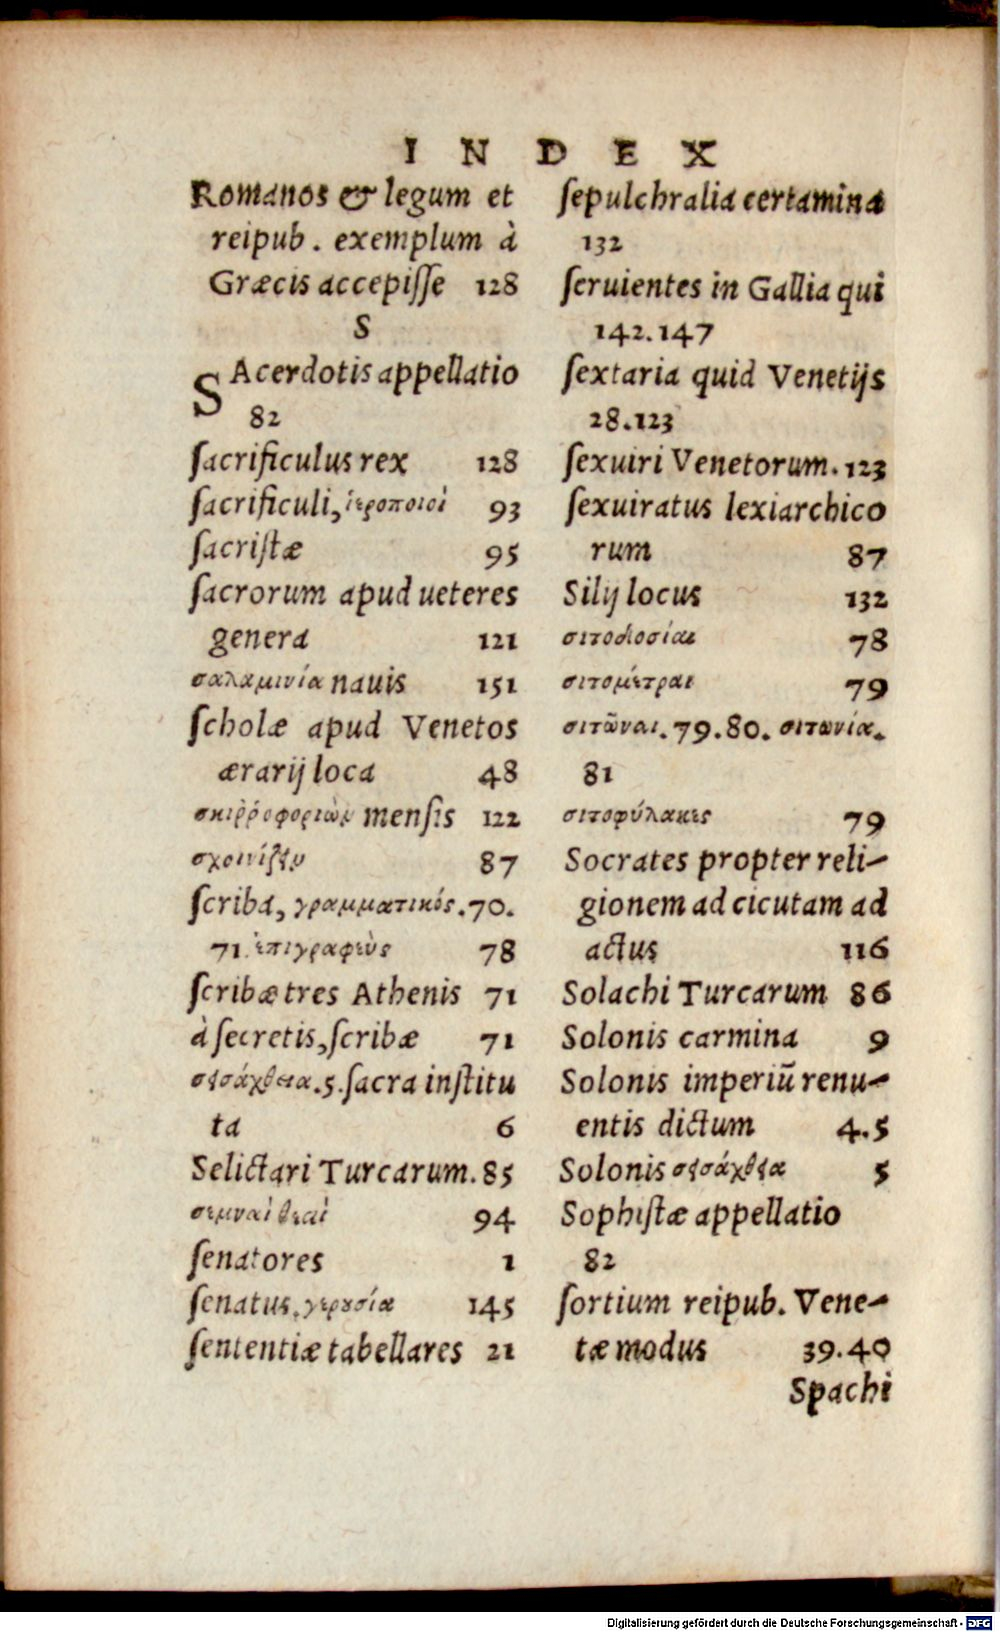 I N D E X
Romanos & legum et
reipub. exemplum à
Græcis accepiſſe 128
S
SAcerdotis appellatio
82
ſacrificulus rex 128
ſacrificuli, ἱεροποιοὶ 93
ſacriſtæ 95
ſacrorum apud ueteres
genera 121
σαλαμινία nauis 151
ſcholæ apud Venetos
ærarij loca 48
σκιῤῥοφοριὼν menſis 122
σχοινίζειν 87
ſcriba, γραμματικός.70.
71. ἐπιγραφεὺς 78
ſcribæ tres Athenis 71
à ſecretis, ſcribæ 71
σεισάχθεια.5. ſacra inſtitu
ta 6
Selictari Turcarum. 85
σεμναὶ θεαὶ 94
ſenatores 1
ſenatus. γερουσία 145
ſententiæ tabellares 21
ſepulchralia certamina
132
ſeruientes in Gallia qui
142.147
ſextaria quid Venetijs
28.123
ſexuiri Venetorum. 123
ſexuiratus lexiarchico
rum 87
Silij locus 132
σιτοδοσίαι 78
σιτομέτραι 79
σιτῶναι. 79.80. σιτωνία.
81
σιτοφύλακες 79
Socrates propter reli-
gionem ad cicutam ad
actus 116
Solachi Turcarum 86
Solonis carmina 9
Solonis imperiū renu-
entis dictum 4.5
Solonis σεισάχθεια 5
Sophiſtæ appellatio
82
ſortium reipub. Vene-
tæ modus 39.40
Spachi
Digitalisierung gefördert durch die Deutsche Forschungsgemeinschaft - DFG